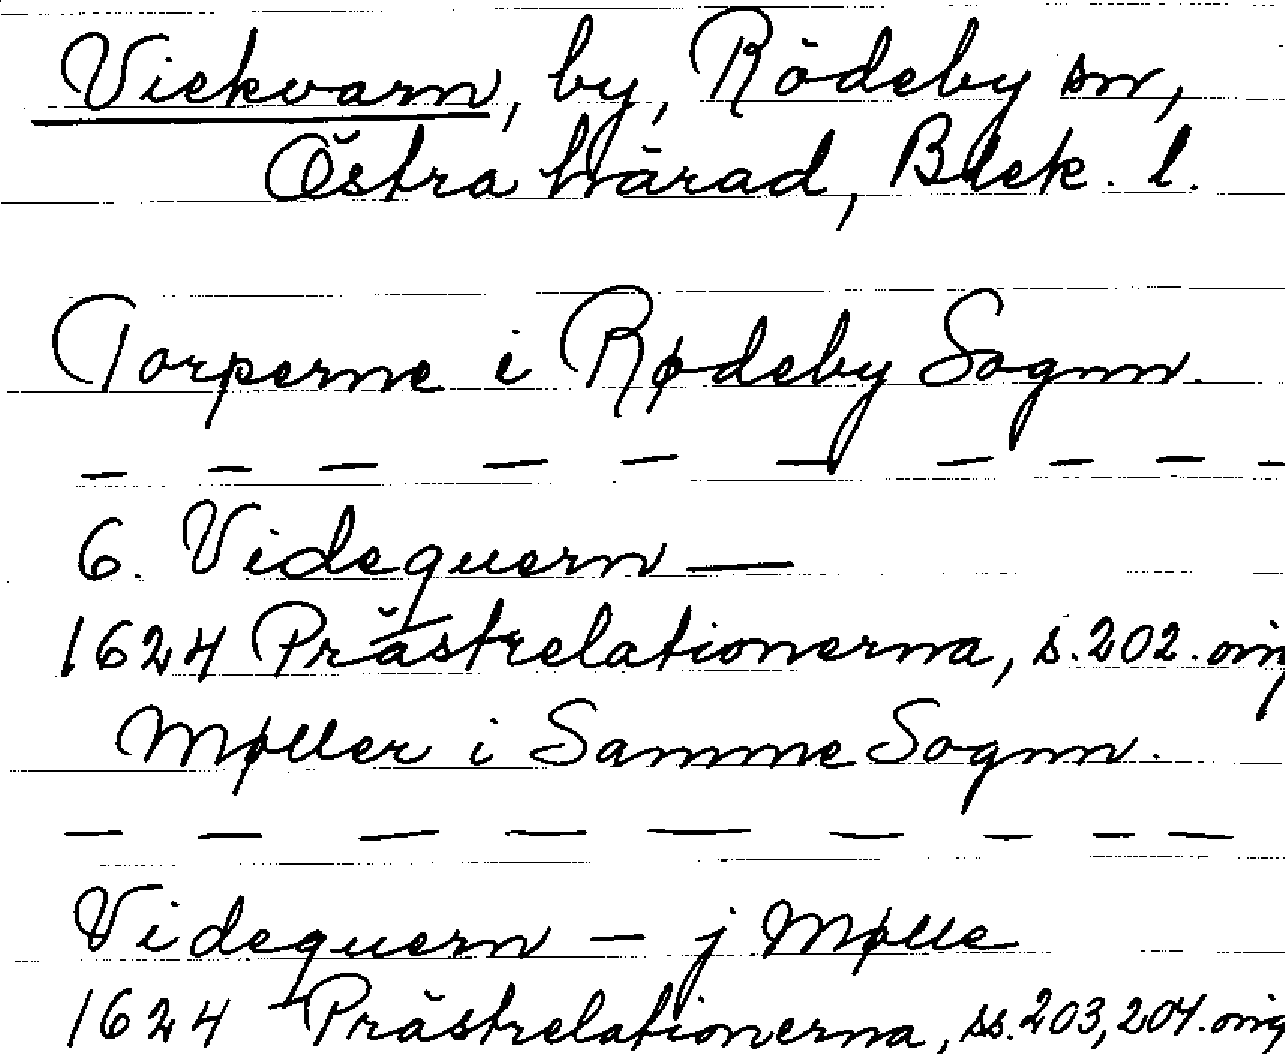 Viekvarn, by, Rödeby sn,
Östra härad, Blek. l.
Torperne i Rødeby Sognn.
— — — — — — — — — —
6. Videquern —
1624 Prästrelationerna, s. 202. orig
Møller i Samme Sognn.
— — — — — — — — —
Videquern — j Mølle
1624 Prästrelationerna, ss. 203, 204. orig